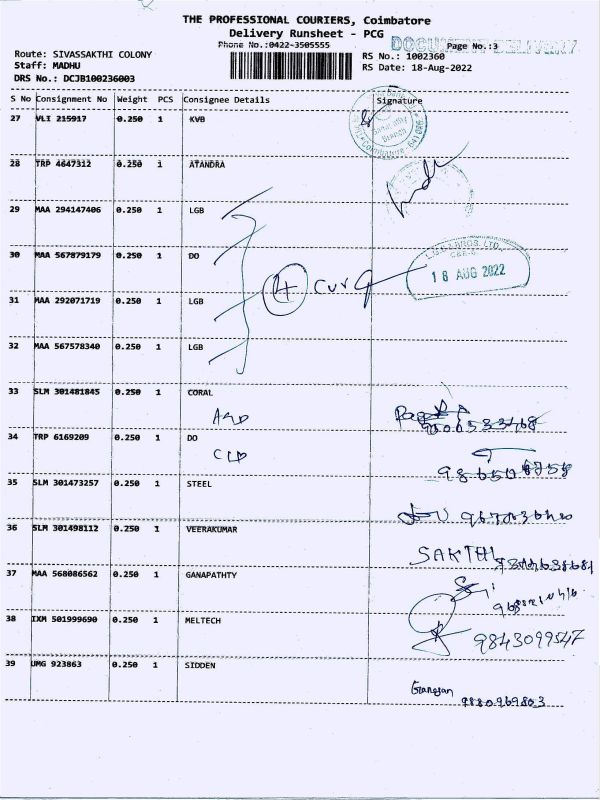 THE PROFESSIONAL COURIERS, Coimbatore
Delivery Runsheet - PCG
Phone No.:0422-3505555
DOCUMENT DELIVERY
Page No.:3
Route: SIVASSAKTHI COLONY
RS No.: 1002360
Staff: MADHU
RS Date: 18-Aug-2022
DRS No.: DCJB100236003
S No Consignment No Weight PCS Consignee Details Signature
27 VLI 215917 0.250 1 KVB
Ganapathy
Branch
Coimbatore - 641 006
28 TRP 4647312 0.250 1 ATANDRA
29 MAA 294147406 0.250 1 LGB
30 MAA 567879179 0.250 1 DO
L.G.B & BROS. LTD.,
18 AUG 2022
4
31 MAA 292071719 0.250 1 LGB
32 MAA 567578340 0.250 1 LGB
33 SLM 301481845 0.250 1 CORAL
34 TRP 6169209 0.250 1 DO
35 SLM 301473257 0.250 1 STEEL
36 SLM 301498112 0.250 1 VEERAKUMAR
SAKTHI
37 MAA 568086562 0.250 1 GANAPATHTY
38 IXM 501999690 0.250 1 MELTECH
9843099547
39 UMG 923863 0.250 1 SIDDEN
Ganesan
9880969803